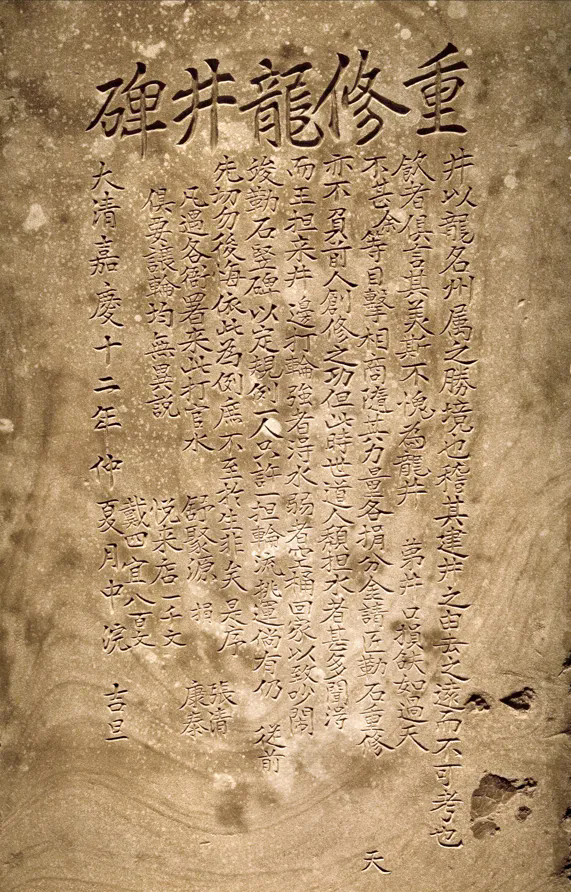 重修龍井碑
井以龍名州属之勝境也稽其建井之由去之遠而不可考也
飲者俱言其美斯不愧為龍井 苐井口損缺如遇天
不甚 等目擊相商隨其力量各捐分金請匠勒石重修
亦不負前人創修之功但此時世道人稠担水者甚多闖得
而王担来井邊打輪強者淂水弱者空桶回家以致吵鬧
竣勤石竪碑以定規例一人只許一担輪流挑運倘有仍 従前
先切勿後海依此為例庶不至於生非矣 是序
凡遇各衙署来此打官水
俱要 輪均無異説
張清
康泰
舒聚源 捐
悦来店一千文
戴四宜八百文
大清嘉慶十二年仲夏月中浣 吉旦
天